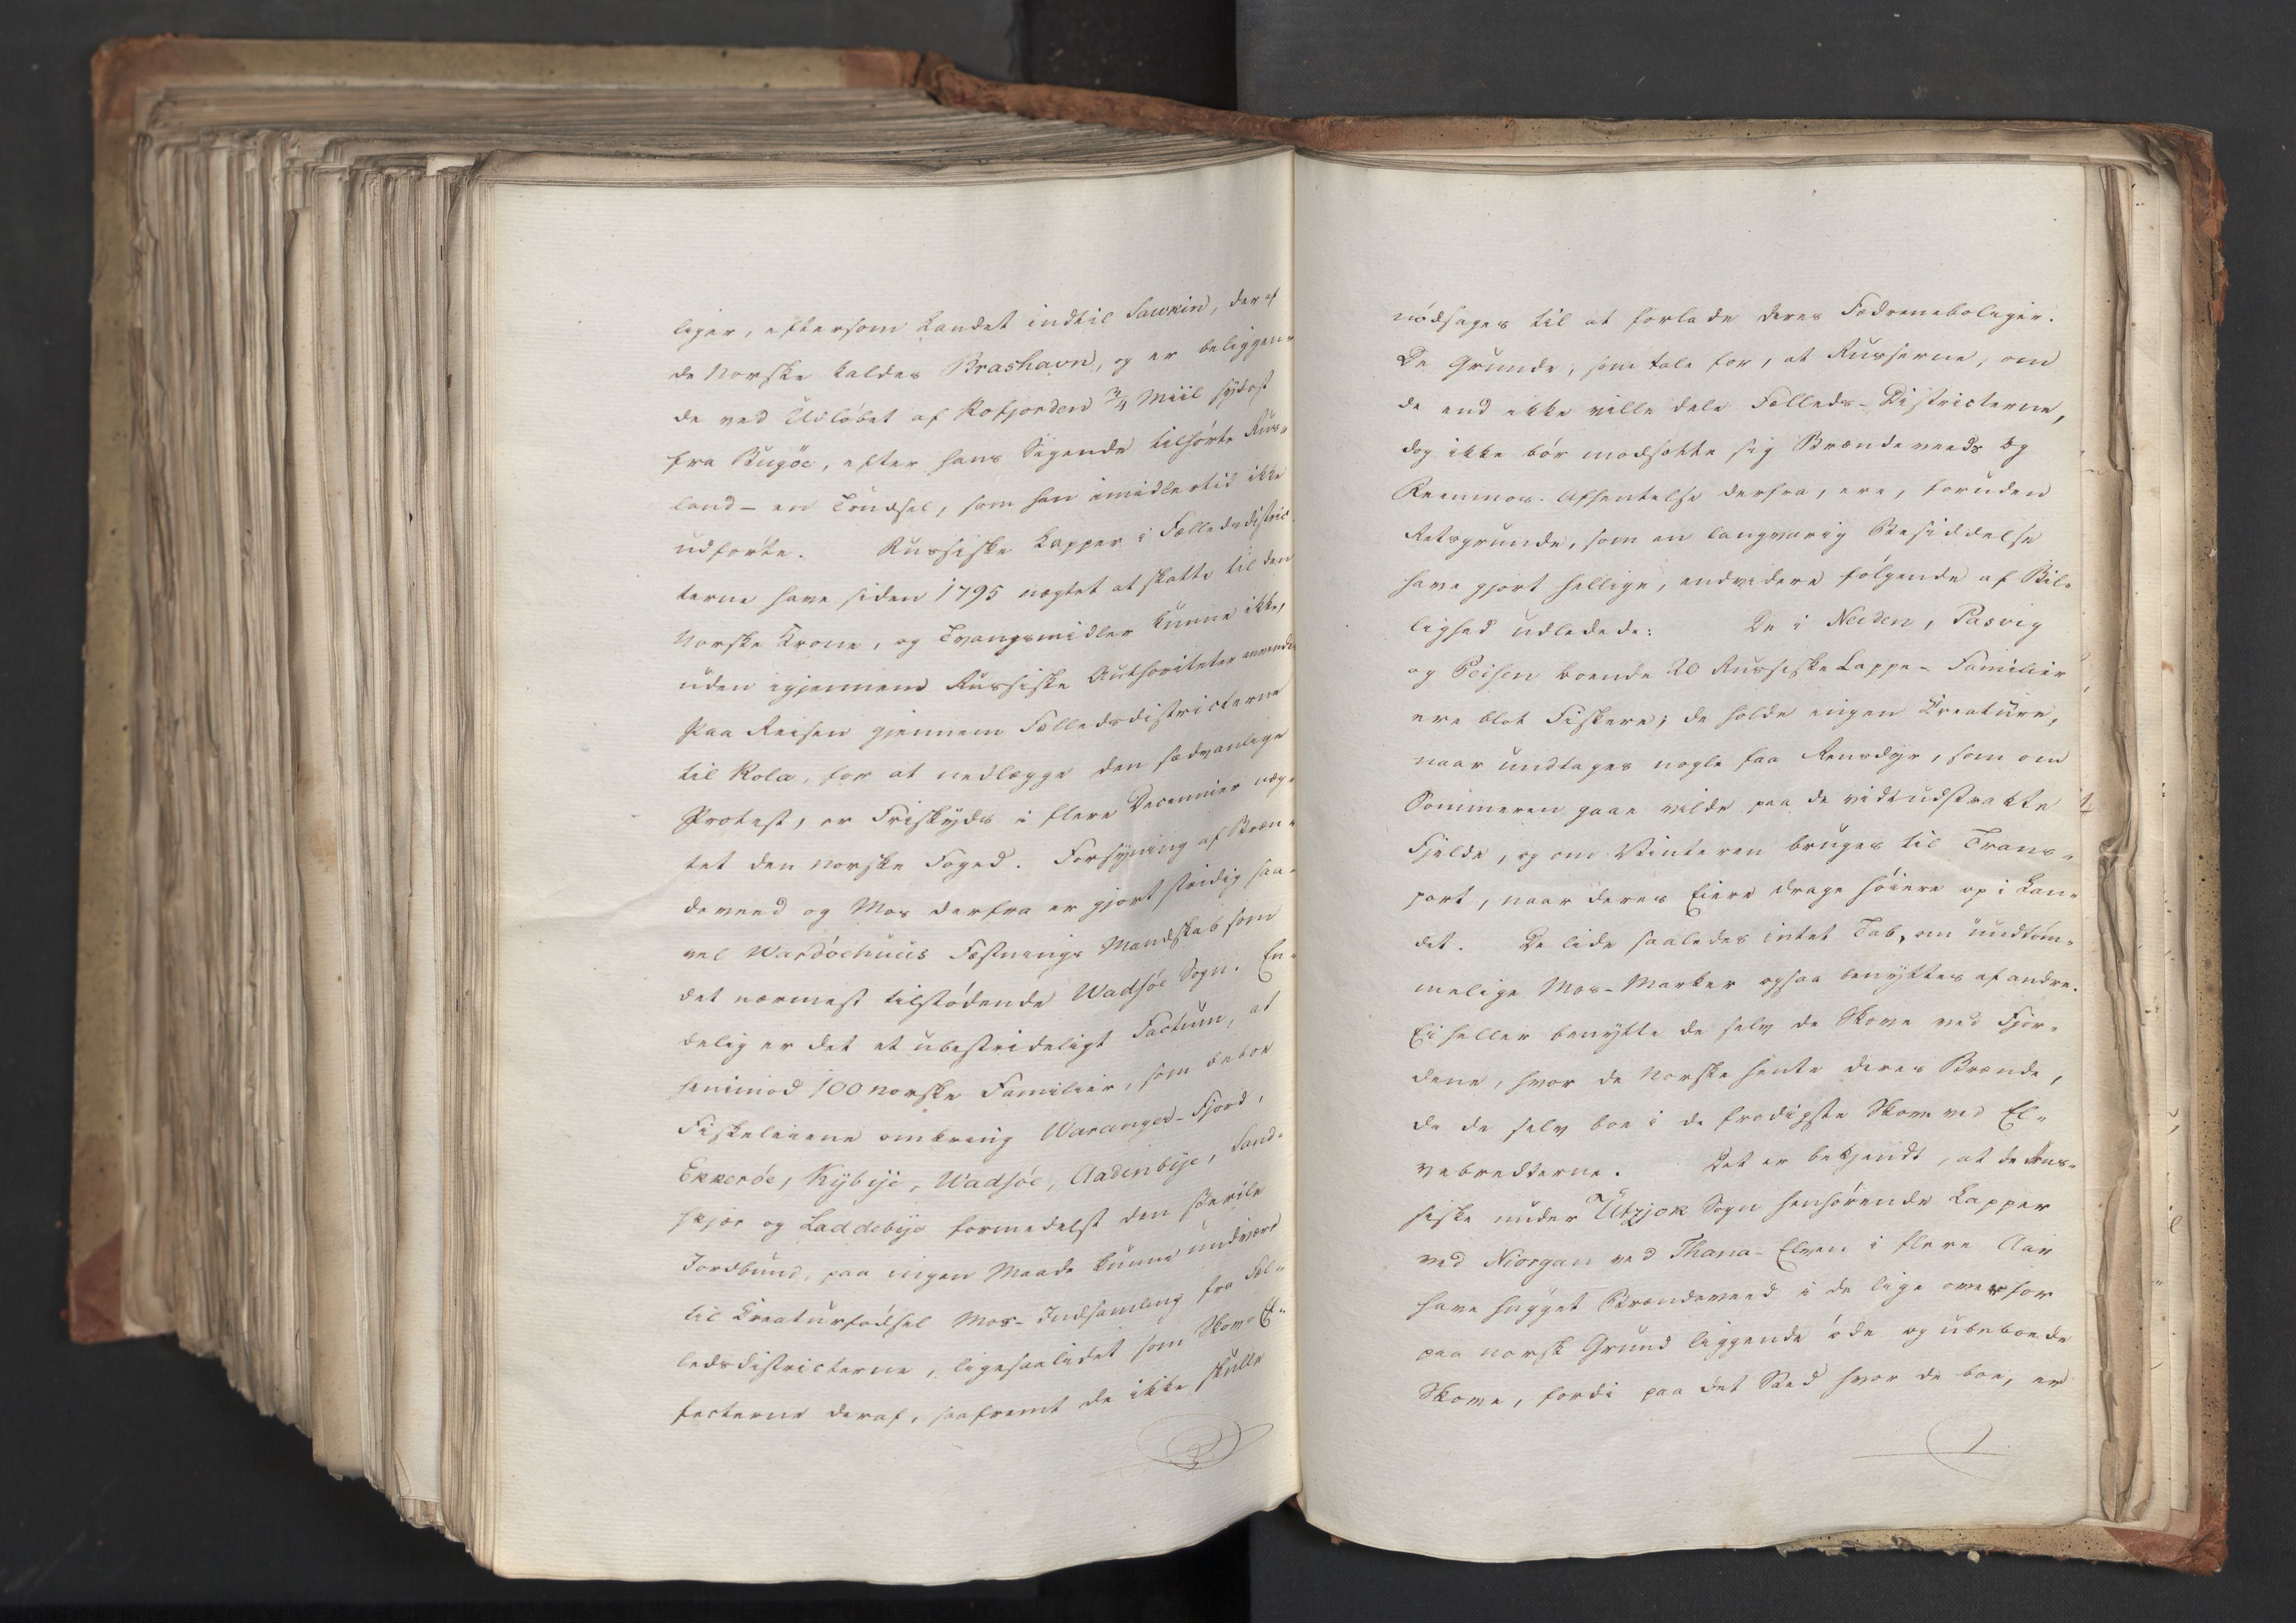 liger, eftersom Landet indtil Sawrin, der af
de Norske kaldes Brashavn, og er beliggen-
de ved Udløbet af Kofjorden 3/4 Miil sydost
fra Bugøe, efter hans Sigende tilhørte Rus-
land – en Trudsel, som han imidlertid ikke
udførte. Russiske Lapper i Fælledsdistric-
terne have siden 1795 nægtet at skatte til den
Norske Krone, og Tvangsmidler kunne ikke,
uden igjennem Russiske Authoriteter anvendes
Paa Reisen gjennem Fælledsdistricterne
til Kola, for at nedlægge den sædvanlige
Protest, er Friskyds i flere Decennier næg-
tet den norske Foged. Forsyning af Bræn-
deveed og Mos derfra er gjort stridig saa-
vel Wardøehuus Fæstnings Mandskab som
det nærmest tilstødende Wadsøe Sogn. En-
delig er det et ubestrideligt Factum, at
henimod 100 norske Familier, som beboe
Fiskeleiene omkring Waranger-Fjord,
Ekkerøe, Kybye, Wadsøe, Aadenbye, Sand-
skjær og Laddebye formedelst den sterile
Jordbund, paa ingen Maade kunne undvære
til Creaturfødsel Mos-Indsamling fra Fæl-
ledsdistricterne, ligesaalidet som Skov-Ef-
fecterne deraf, saafremt de ikke skulle
nødsages til at forlade deres Fædreneboliger.
De Grunde, som tale for, at Russerne, om
de end ikke ville dele Fælleds-Districterne,
dog ikke bør modsætte sig Brændeveeds og
Reenmos-Afhentelse derfra, ere, foruden
Retsgrunde, som en langvarig Besiddelse
have gjort hellige, endvidere følgende af Bil-
lighed udledede: De i Neiden, Pasvig
og Peisen boende 20 Russiske Lappe-Familier
ere blot Fiskere; de holde ingen Kreature,
naar undtages nogle faa Rensdyr, som om
Sommeren gaae vilde paa de vidtudstrakte
Fjelde, og om Vinteren bruges til Trans-
port, naar deres Eiere drage høiere op i Lan-
det. De lide saaledes intet Tab, om uudtøm-
melige Mos-Marker ogsaa benyttes af andre.
Ei heller benytte de selv de Skove ved Fjor-
dene, hvor de Norske hente deres Brænde,
da de selv boe i de frodigste Skove ved El-
vebredderne. Det er bekjendt, at de Rus-
siske under Utzjok Sogn henhørende Lapper
ved Niorgan ved Thana-Elven i flere Aar
have hugget Brændeveed i de lige overfor
paa norsk Grund liggende øde og ubeboede
Skove, fordi paa det Sted hvor de boe, er